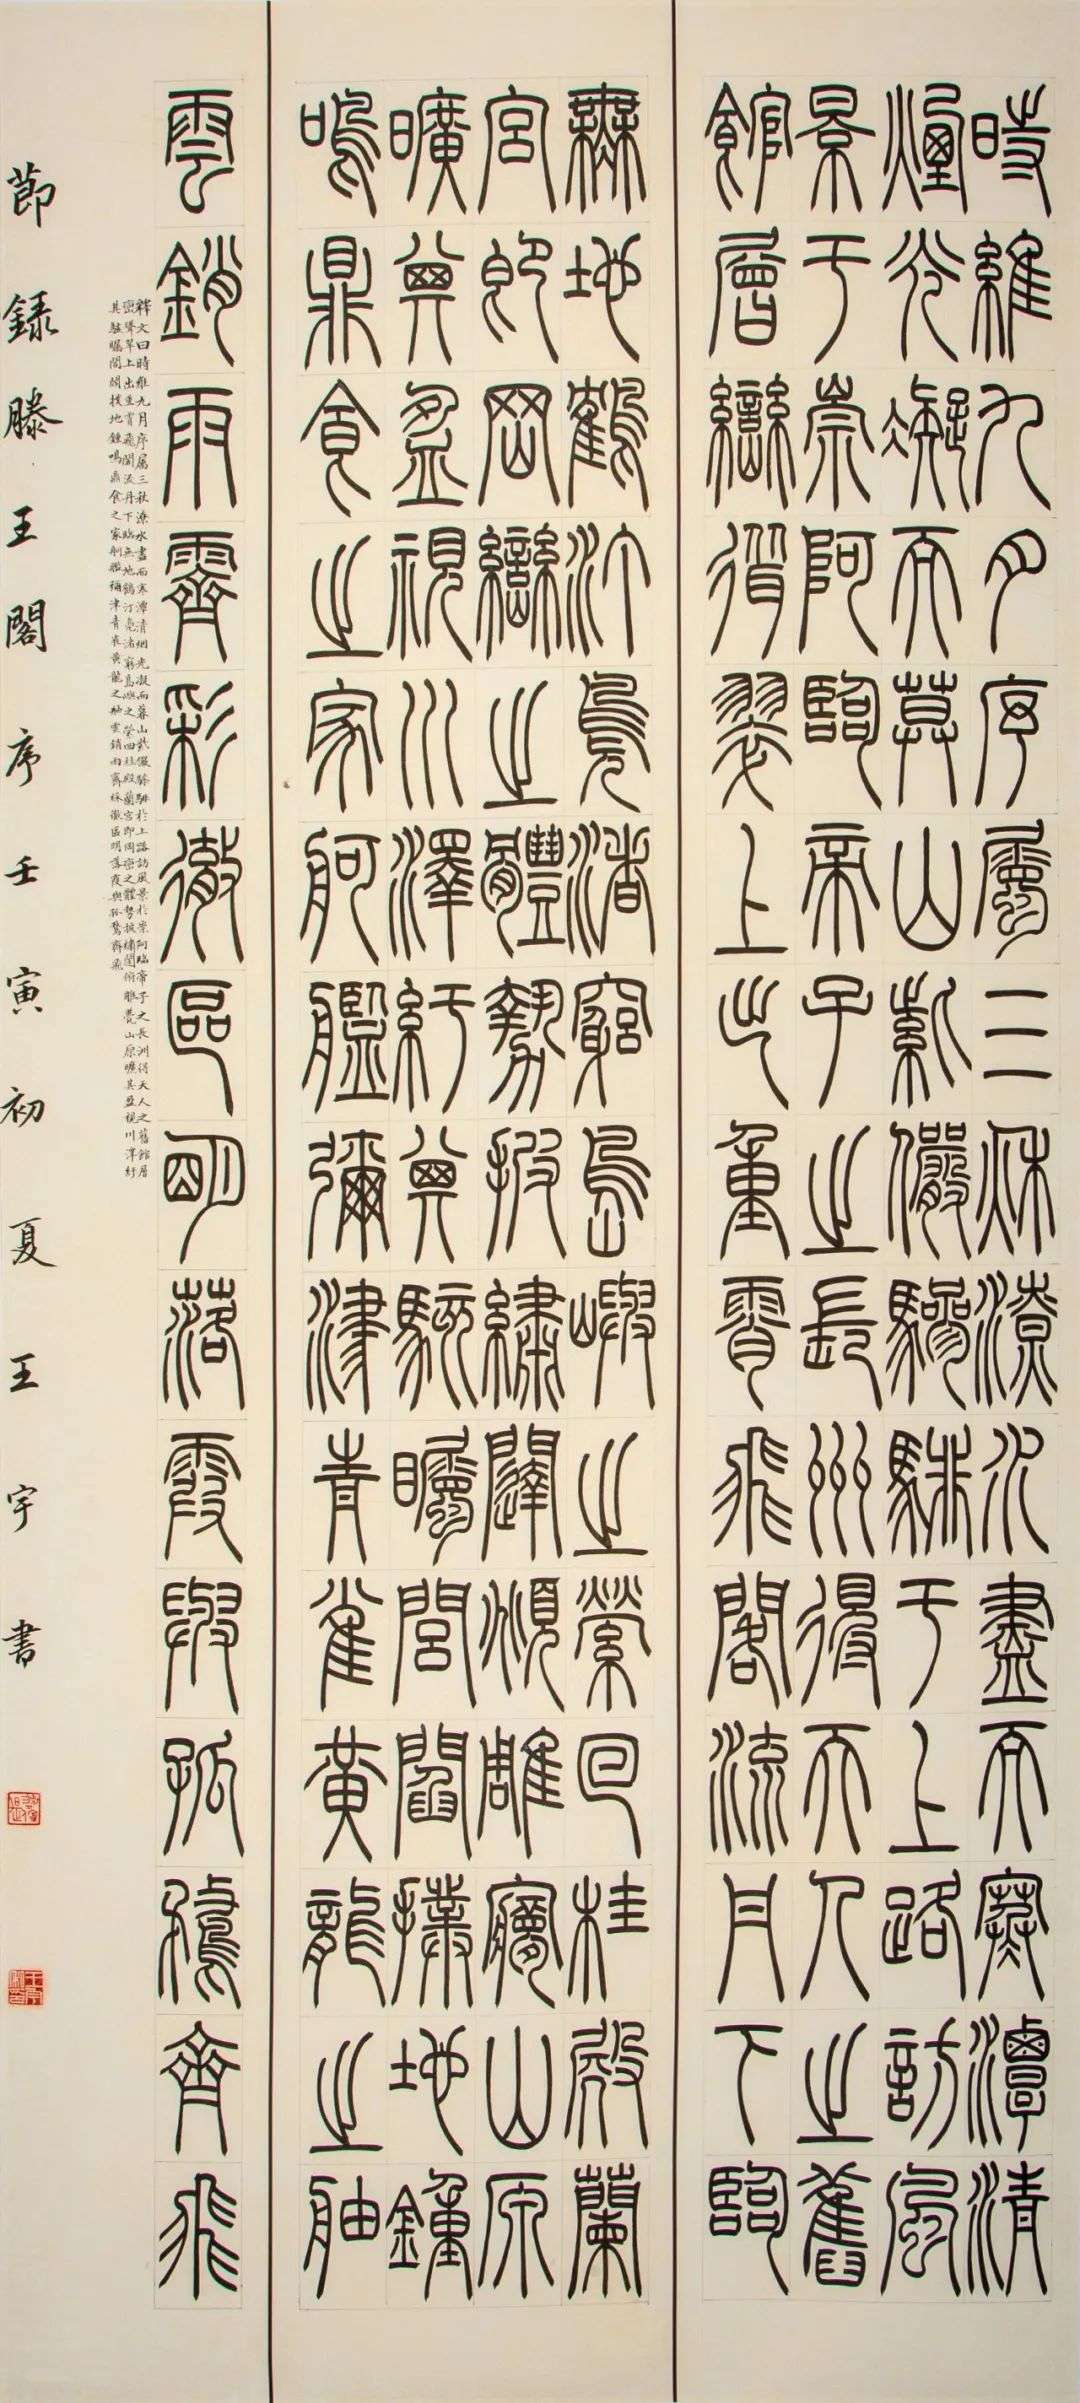 時維九月序屬三秋潦水盡而寒潭清
煙光凝而莫山紫儼驂騑于上路訪風
景于崇阿臨帝子之長州得天人之舊
館層巒聳翠上出重霄飛閣流丹下臨
無地鶴汀鳧渚窮島嶼之縈回桂殿蘭
宮即岡巒之體勢披繡闥俯雕甍山原
曠其盈視川澤紆其駭矚閭閻撲地鐘
鳴鼎食之家舸艦彌津青雀黃龍之舳
雲銷雨霽彩徹區明落霞與孤鶩齊飛
釋文曰時維九月序屬三秋潦水盡而寒潭清烟光凝而暮山紫儼驂騑於上路訪風景於崇阿臨帝子之長洲得天人之舊館層
巒聳翠上出重霄飛閣流丹下臨無地鶴汀鳧渚窮島嶼之縈回桂殿蘭宮即岡巒之體勢披繡闥俯雕甍山原曠其盈視川澤紆
其駭矚閭閻撲地鐘鳴鼎食之家舸艦彌津青雀黃龍之舳雲銷雨霽彩徹區明落霞與孤鶩齊飛
節録滕王閣序壬寅初夏王宇書